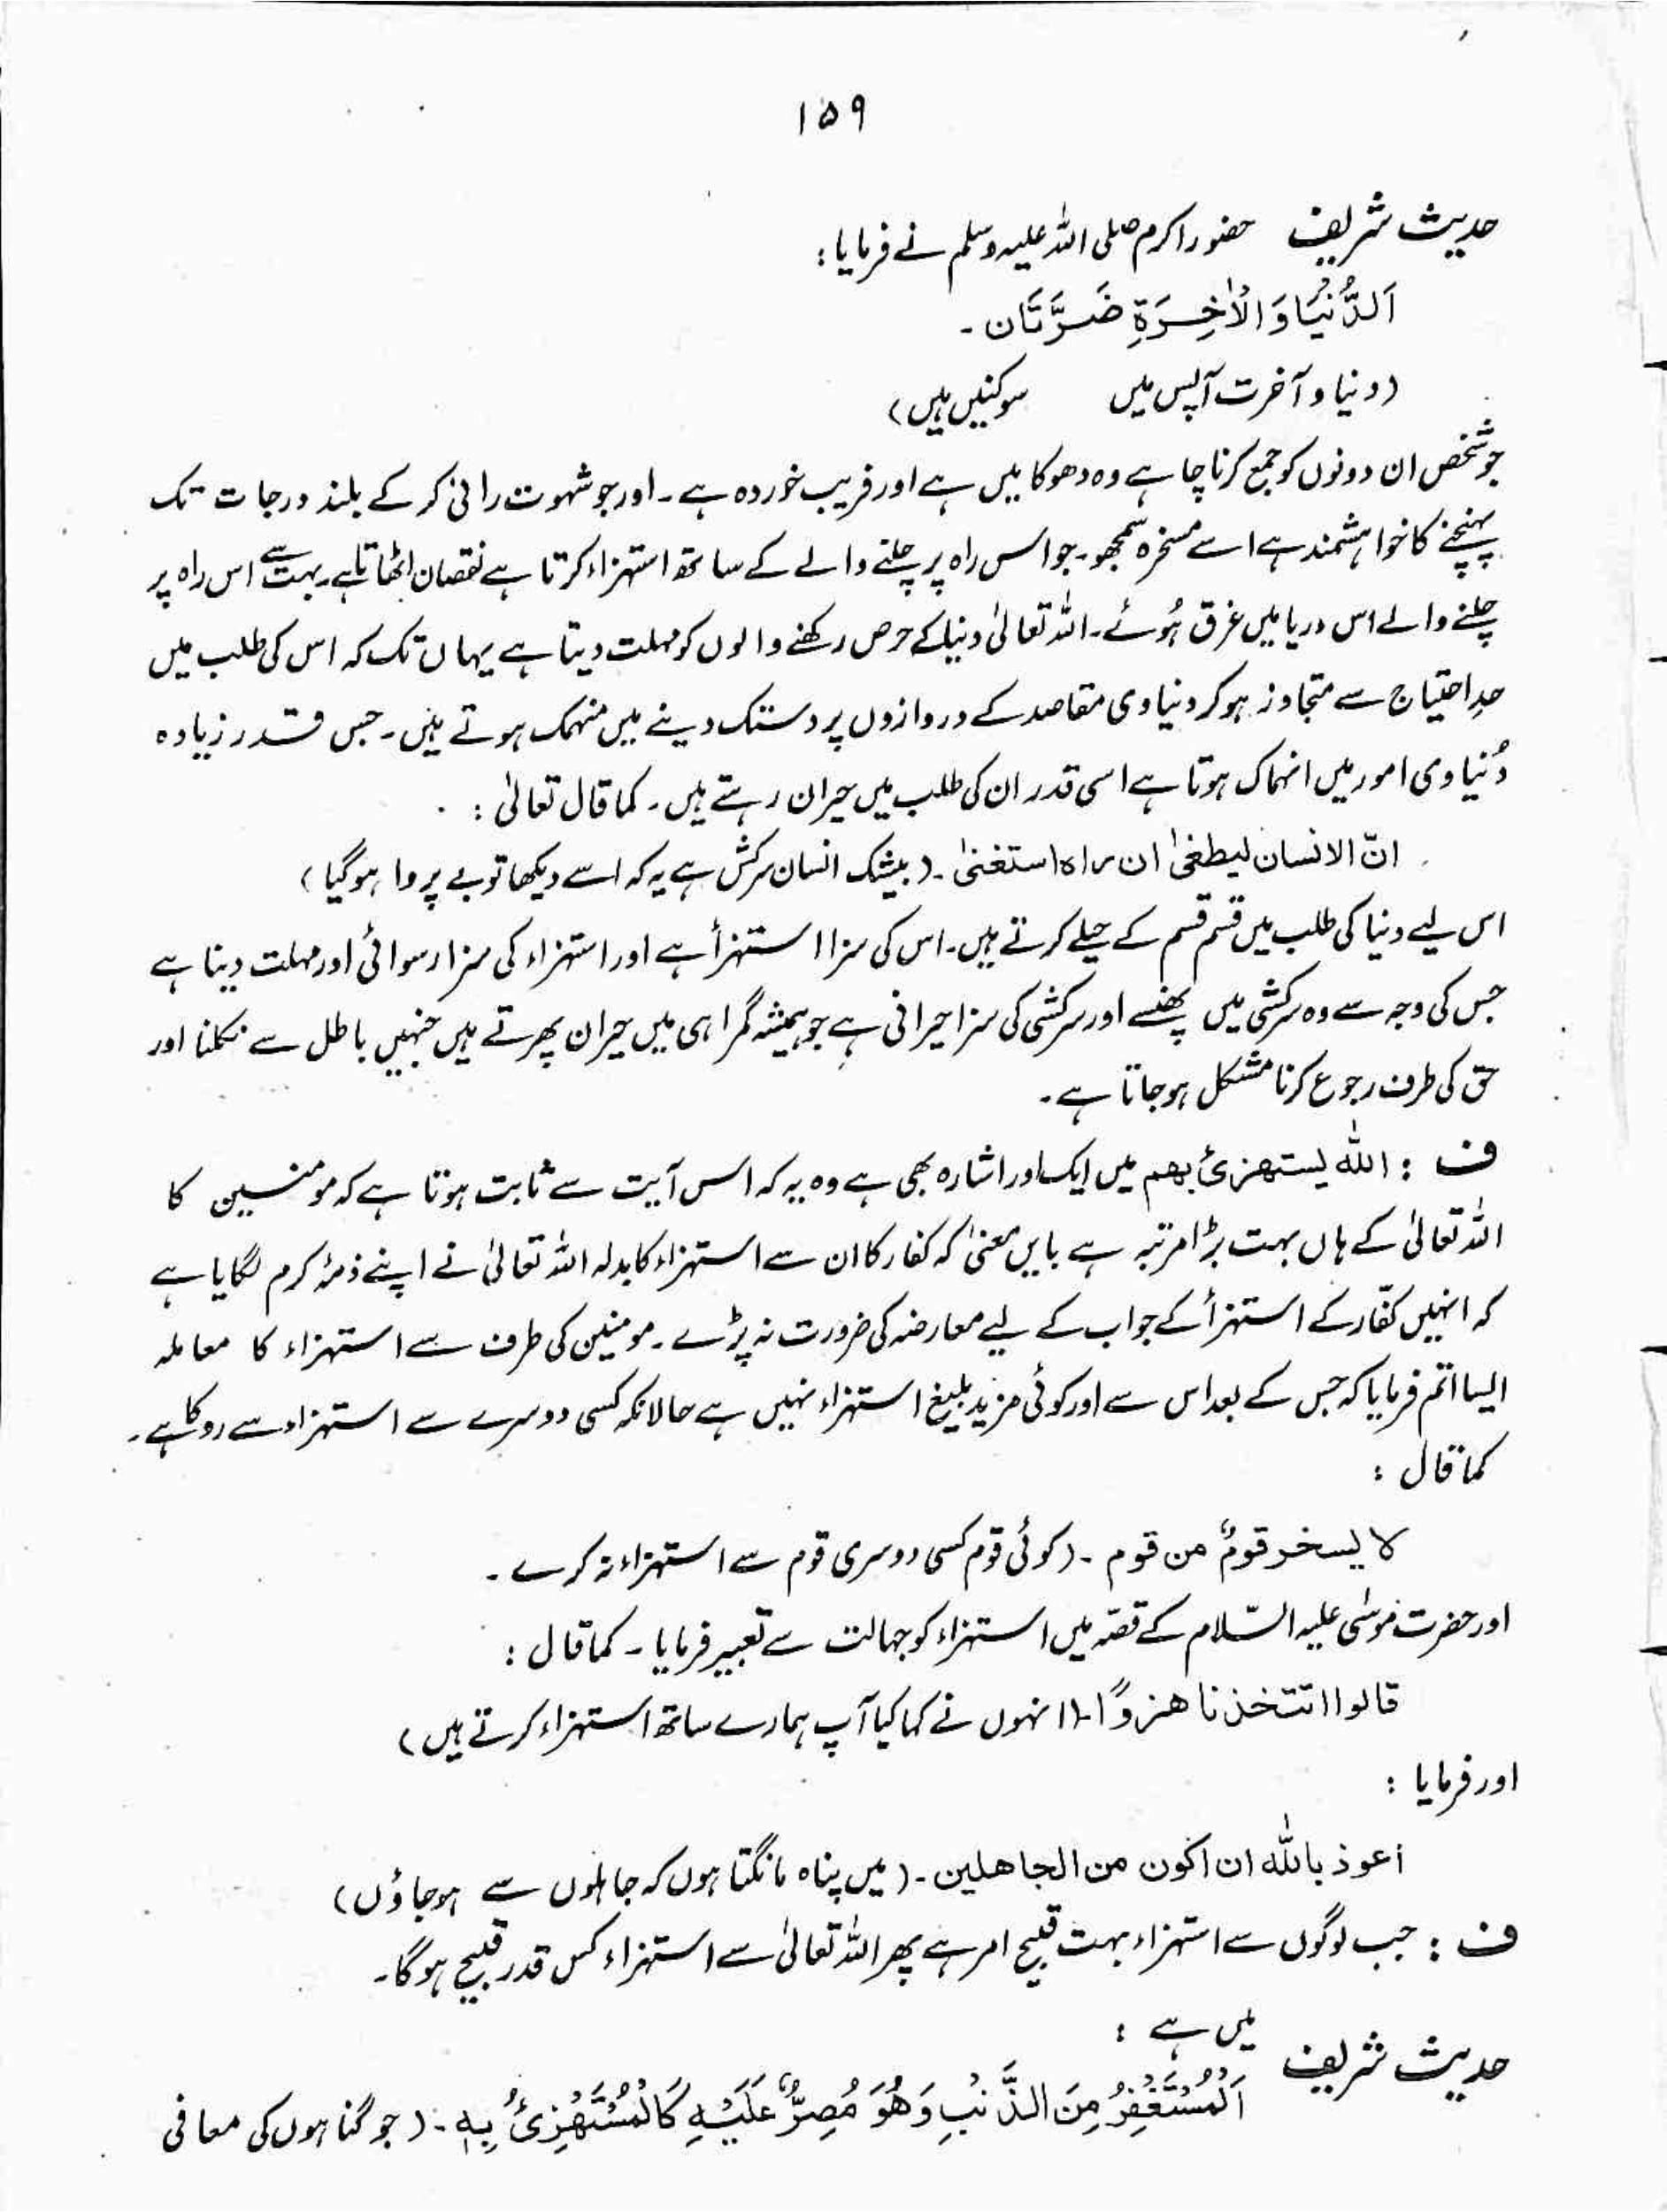 ۱۵۹
حدیث شریف حضور اکرم صلی اللہ علیہ وسلم نے فرمایا :
اَلدُّنْیَا وَالْاٰخِرَةِ ضَرَّتَان ۔
(دنیا و آخرت آپس میں سوکنیں ہیں)
جو شخص ان دونوں کو جمع کرنا چاہے وہ دھوکا میں ہے اور فریب خوردہ ہے ۔ اور جو شہوت رانی کر کے بلند درجات تک
پہنچنے کا خواہشمند ہے اسے مسخرہ سمجھو ۔ جو اس راہ پر چلنے والے کے ساتھ استہزاء کرتا ہے نقصان اٹھاتا ہے بہت سے اس راہ پر
چلنے والے اس دریا میں غرق ہُوئے ۔ اللہ تعالیٰ دنیا کے حرص رکھنے والوں کو مہلت دیتا ہے یہاں تک کہ اس کی طلب میں
حدِ احتیاج سے متجاوز ہو کر دنیاوی مقاصد کے دروازوں پر دستک دینے میں منہمک ہوتے ہیں ۔ جس قدر زیادہ
دُنیاوی امور میں انہماک ہوتا ہے اسی قدر ان کی طلب میں حیران رہتے ہیں ۔ کما قال تعالیٰ :
انّ الانسان لیطغیٰ ان راہ استغنیٰ ۔ (بیشک انسان سرکش ہے یہ کہ اسے دیکھا تو بے پروا ہو گیا)
اس لیے دنیا کی طلب میں قسم قسم کے حیلے کرتے ہیں ۔ اس کی سزا استہزأ ہے اور استہزاء کی سزا رسوائی اور مہلت دینا ہے
جس کی وجہ سے وہ سرکشی میں پھنسے اور سرکشی کی سزا حیرانی ہے جو ہمیشہ گمراہی میں حیران پھرتے ہیں جنہیں باطل سے نکلنا اور
حق کی طرف رجوع کرنا مشکل ہو جاتا ہے ۔
ف : اللہ یستھزئ بھم میں ایک اور اشارہ بھی ہے وہ یہ کہ اس آیت سے ثابت ہوتا ہے کہ مومنین کا
اللہ تعالیٰ کے ہاں بہت بڑا مرتبہ ہے بایں معنیٰ کہ کفار کا ان سے استہزاء کا بدلہ اللہ تعالیٰ نے اپنے ذمۂ کرم لگایا ہے
کہ انہیں کفّار کے استہزأ کے جواب کے لیے معارضہ کی ضرورت نہ پڑے ۔ مومنین کی طرف سے استہزاء کا معاملہ
ایسا اتم فرمایا کہ جس کے بعد اس سے اور کوئی مزید بلیغ استہزاء نہیں ہے حالانکہ کسی دوسرے سے استہزاء سے روکا ہے ۔
کما قال :
لا یسخر قومٌ من قوم ۔ (کوئی قوم کسی دوسری قوم سے استہزاء نہ کرے ۔
اور حضرت موسٰی علیہ السّلام کے قصّہ میں استہزاء کو جہالت سے تعبیر فرمایا ۔ کما قال :
قالوا اتتخذنا ھزوًا ۔ (انہوں نے کہا کیا آپ ہمارے ساتھ استہزاء کرتے ہیں)
اور فرمایا :
أعوذ باللہ ان اکون من الجاھلین ۔ (میں پناہ مانگتا ہوں کہ جاہلوں سے ہو جاؤں)
ف : جب لوگوں سے استہزاء بہت قبیح امر ہے پھر اللہ تعالیٰ سے استہزاء کس قدر قبیح ہوگا ۔
حدیث شریف میں ہے :
اَلْمُسْتَغْفِرُ مِنَ الذَّنْبِ وَھُوَ مُصِرٌّ عَلَیْہِ کَالْمُسْتَھْزِئُ بِہٖ ۔ (جو گناہوں کی معافی